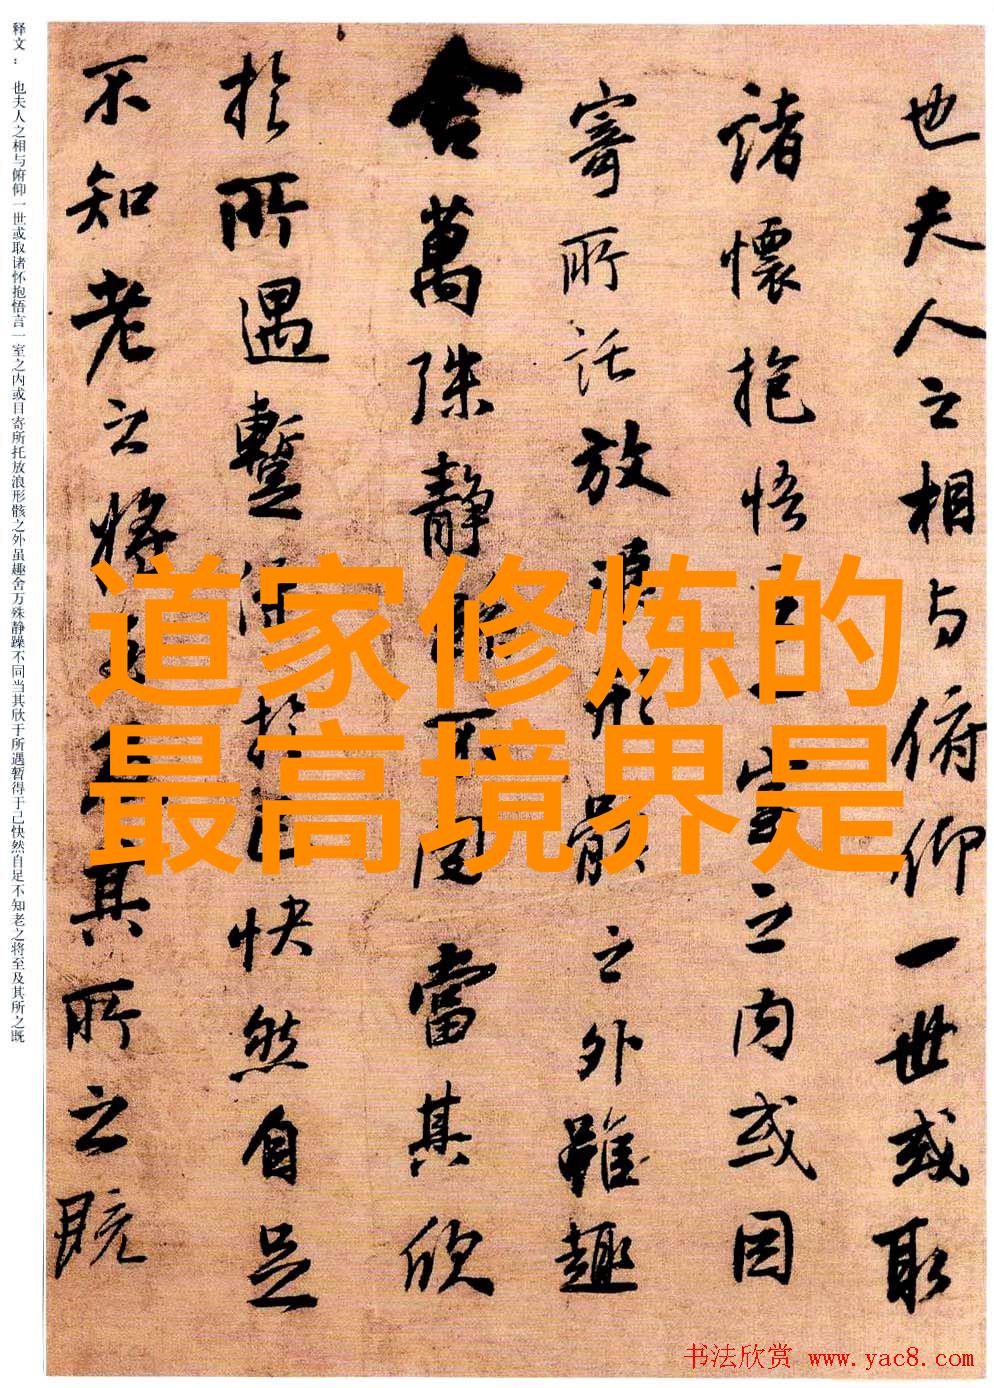 释文：也夫人之相与俯仰一世或取诸怀抱悟言一室之内或因寄所托放浪形骸之外虽趣舍万殊静躁不同当其欣于所遇暂得于己快然自足不知老之将至及其所之既
也夫人之相与俯仰一世或取
諸懷抱悟言一室之内或因
寄所託放浪形骸之外雖趣
舍萬殊静躁不同當其欣
於所遇蹔得於己快然自足
不知老之將至及其所之既
道家修炼的
最高境界是
书法欣赏 www.yac8.com